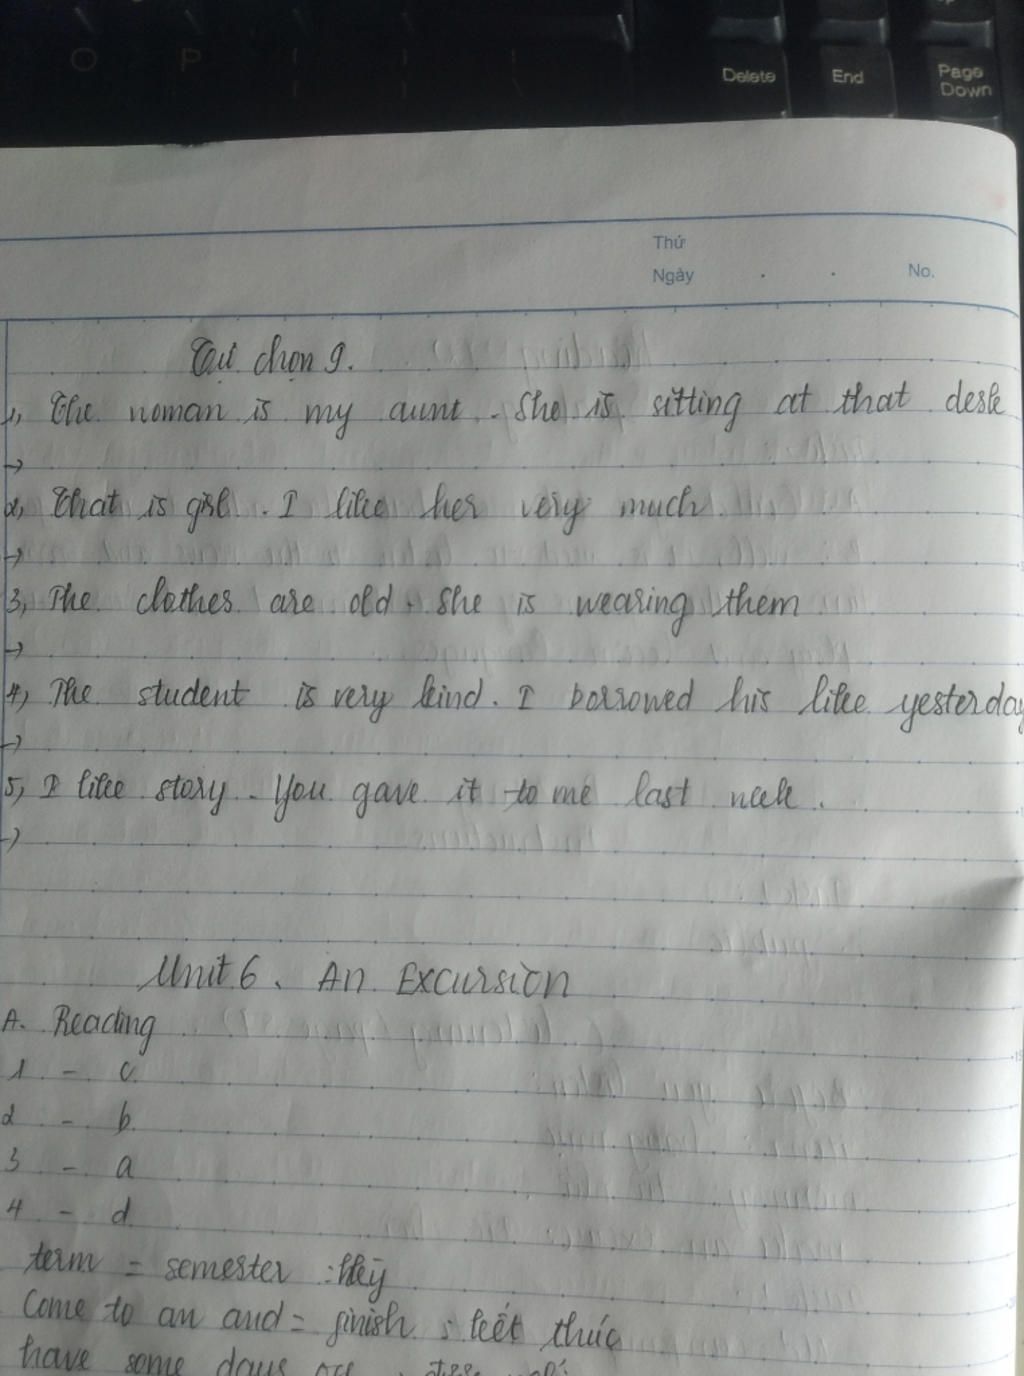 O P Delete End Page Down
Thứ
Ngày . . No.
Tự chọn 9.
1, The woman is my aunt. She is sitting at that desk
→
2, That is girl. I like her very much
→
3, The clothes are old. She is wearing them
→
4, The student is very kind. I borrowed his like yesterday
→
5, I like story. You gave it to me last week.
→
Unit 6. An Excursion
A. Reading
1 - c
2 - b
3 - a
4 - d
term = semester : kỳ
Come to an and = finish : kết thúc
have some days